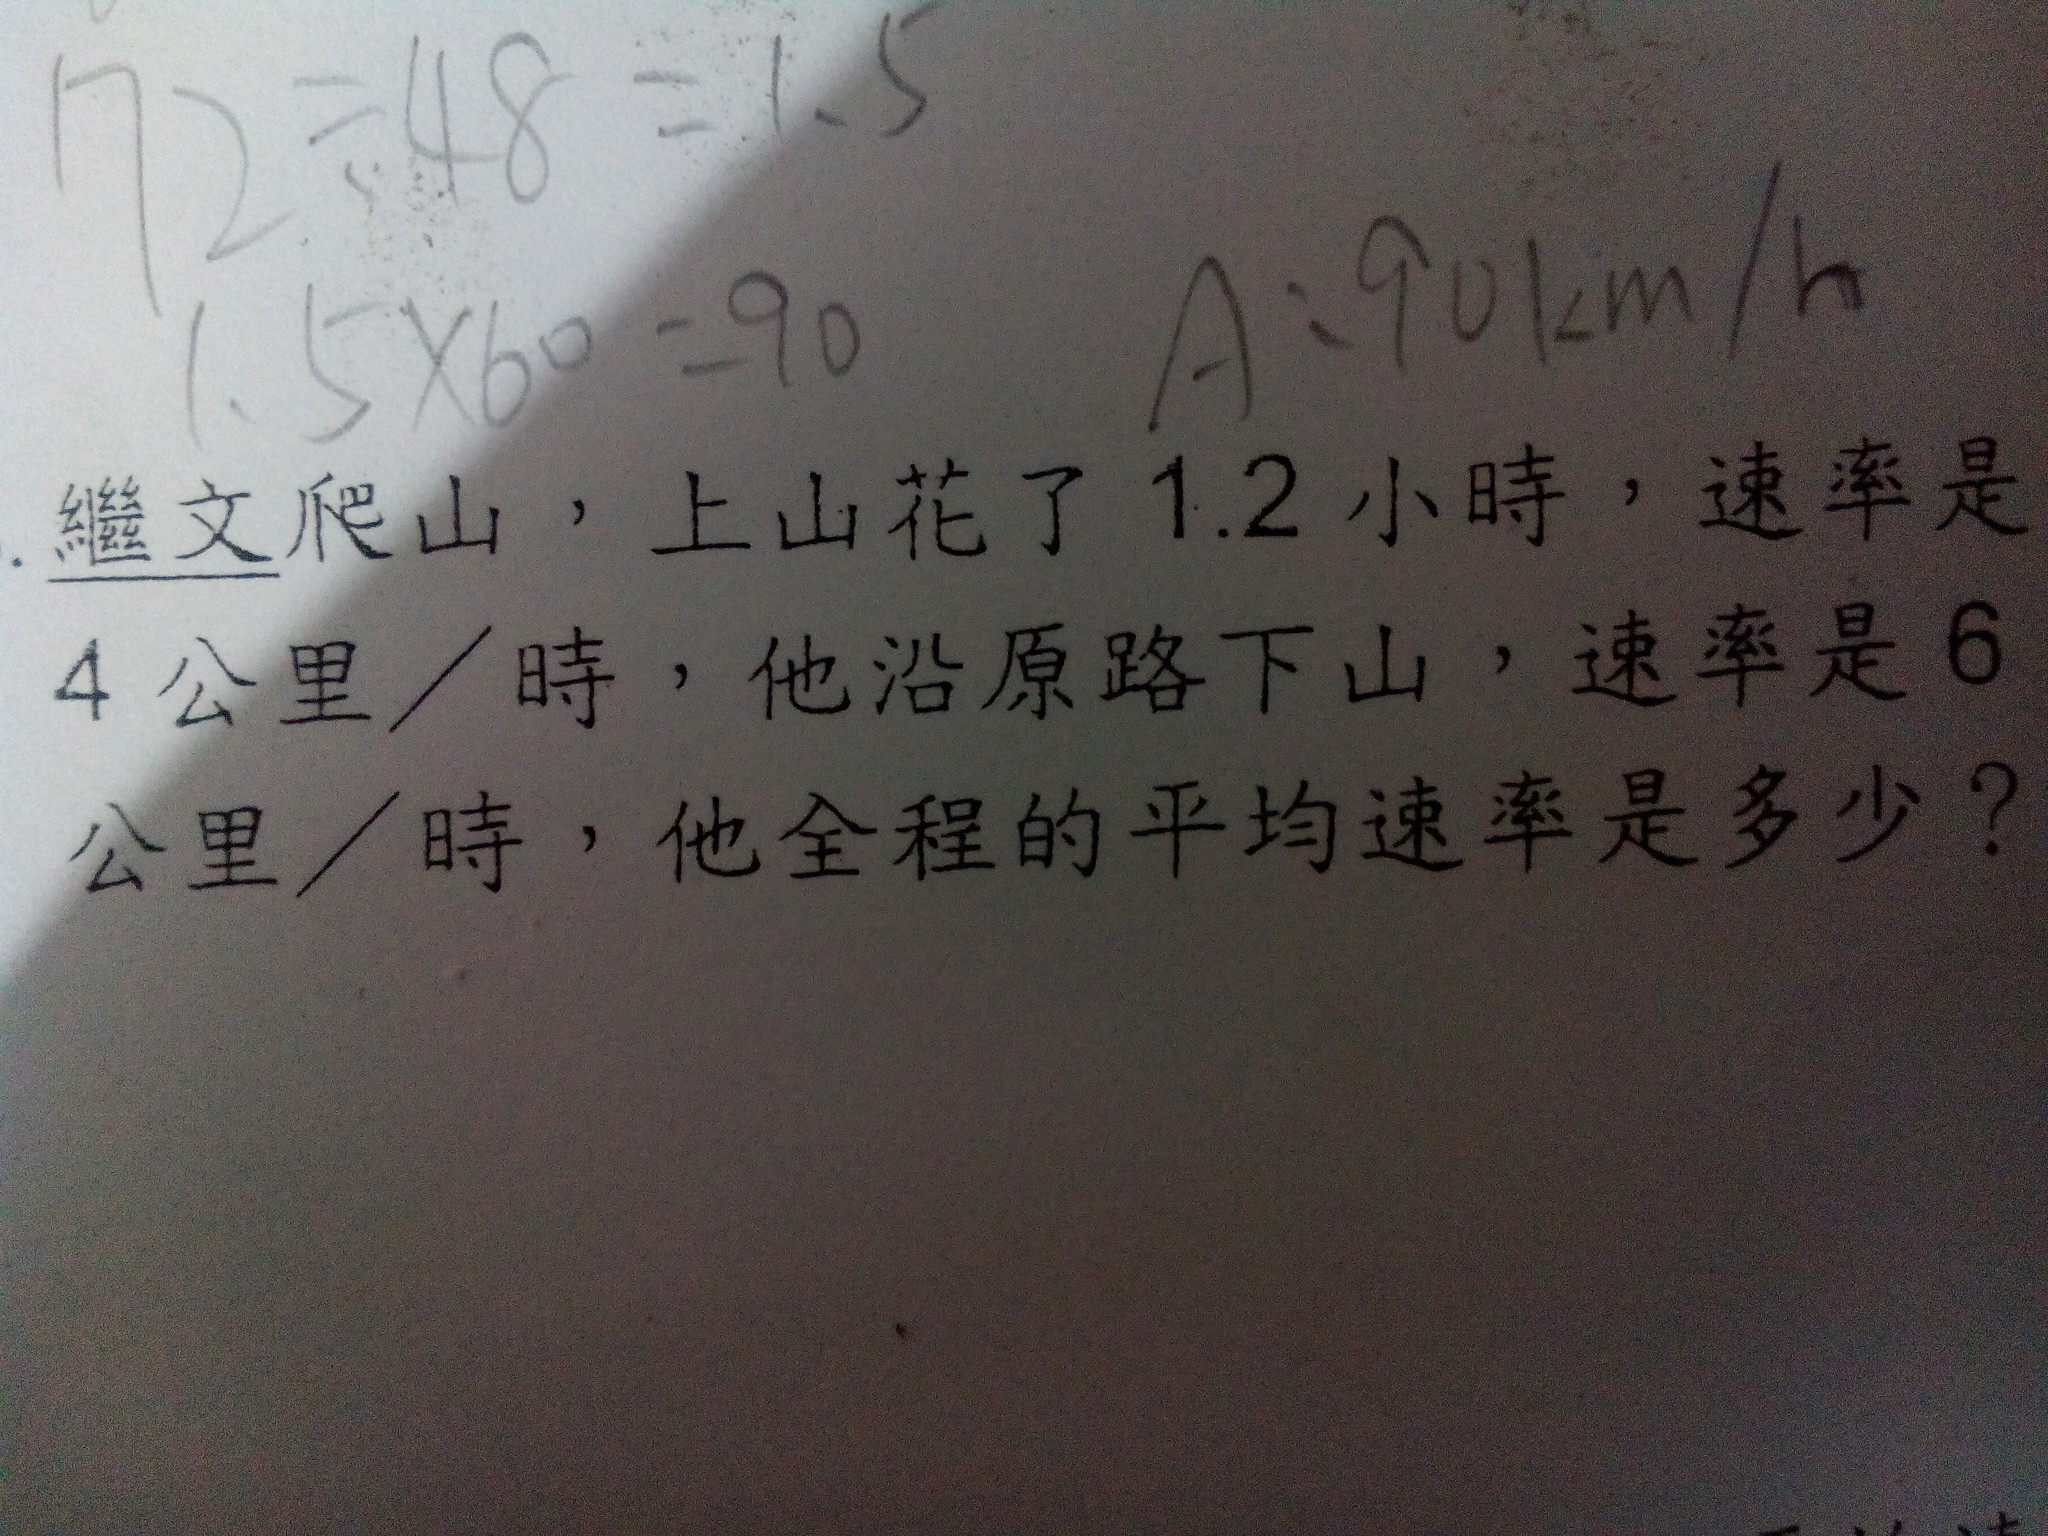 72÷48=1.5
1.5×60=90 A:90km/h
.繼文爬山，上山花了1.2小時，速率是
4公里／時，他沿原路下山，速率是6
公里／時，他全程的平均速率是多少？